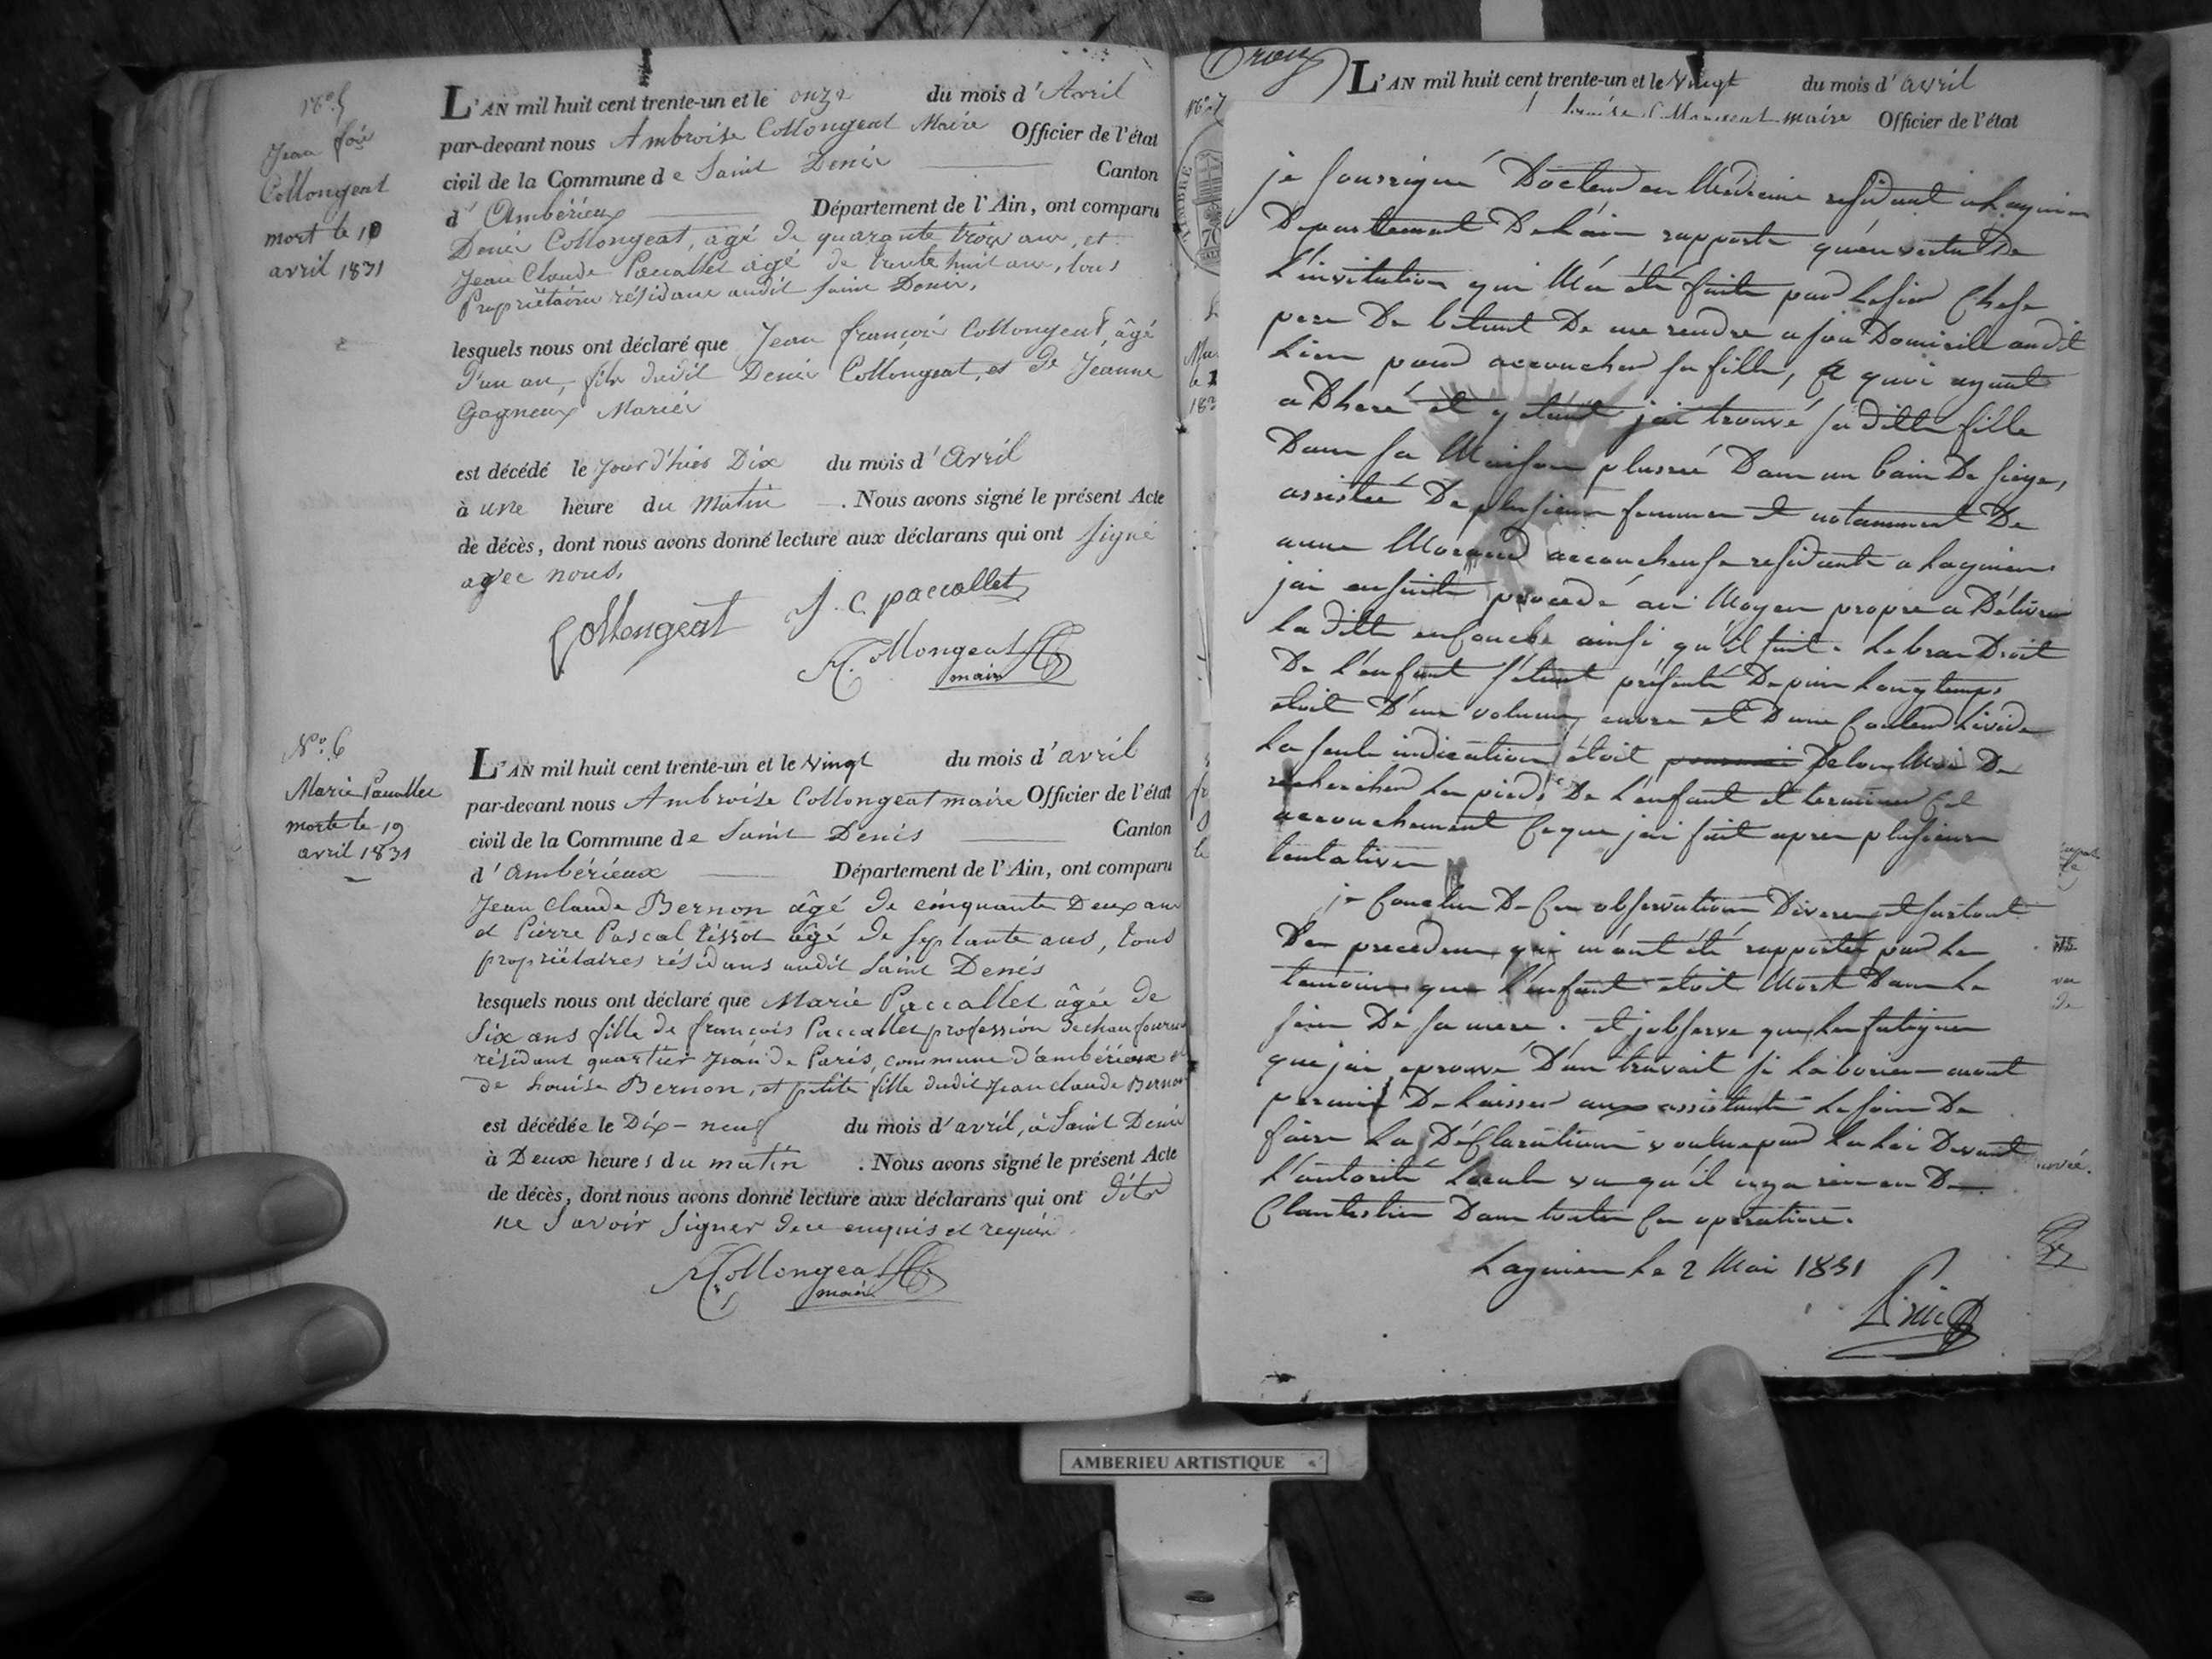 N.º 5
Jean fois
Collongeat
mort le 10
avril 1831
L'AN mil huit cent trente-un et le onze du mois d'Avril
par-devant nous Ambroise Collongeat Maire Officier de l'état
civil de la Commune de Saint Denis Canton
d'Ambérieux Département de l'Ain, ont comparu
Denis Collongeat, agé de quarante trois ans, et
Jean Claude Paccallet agé de trente huit ans, tous
Propriétaires résidans audit Saint Denis,
lesquels nous ont déclaré que Jean françois Collongeat, âgé
d'un an, fils dudit Denis Collongeat, et de Jeanne
Gagneux Mariés
est décédé le jour d'hier Dix du mois d'Avril
à une heure du Matin . Nous avons signé le présent Acte
de décès, dont nous avons donné lecture aux déclarans qui ont signé
avec nous.
Collongeat J. C. paccallet
A. Collongeat
maire
N.º 6
Marie Paccallet
morte le 19
avril 1831
L'AN mil huit cent trente-un et le vingt du mois d'avril
par-devant nous Ambroise Collongeat maire Officier de l'état
civil de la Commune de Saint Denis Canton
d'Ambérieux Département de l'Ain, ont comparu
Jean Claude Bernon âgé de cinquante Deux ans
et Pierre Pascal tissot âgé de septante ans, tous
propriétaires résidans audit Saint Denis
lesquels nous ont déclaré que Marie Paccallet âgée de
Six ans fille de françois Paccallet profession de chaufournier
résidant quartier Jean de Paris, commune d'ambérieux et
de Louise Bernon, et petite fille dudit Jean claude Bernon
est décédée le Dix-neuf du mois d'avril, à Saint Denis
à Deux heures du matin . Nous avons signé le présent Acte
de décès, dont nous avons donné lecture aux déclarans qui ont dits
ne Savoir Signer de ce enquis et requis.
A. Collongeat
maire
N.º 7
L'AN mil huit cent trente-un et le vingt du mois d'avril
Collongeat maire Officier de l'état
TIMBRE
je soussigné Docteur en Médecine résidant a Lagnieu
Département De l'ain rapporte qu'en vertu De
l'invitation qui M'a été faite par le sieur
pere De De me rendre a son Domicile audit
Lieu pour accoucher sa fille, a quoi ayant
adheré et y etant j'ai trouvé sa ditte fille
Dans sa Maison plussée Dans un bain De siege,
assistée De plusieurs femmes et notamment De
anne Morand accoucheuse residante a Lagnieu.
j'ai ensuite procedé au Moyen propre a Délivrer
la ditte en couche ainsi qu'il suit. Le bras Droit
De l'enfant s'étant présenté Depuis Longtemps
étoit D'un volume et D'une Couleur livide
La seule indication étoit selon Moi De
rechercher les pieds De l'enfant et terminer cet
accouchement Ce que j'ai fait apres plusieurs
tentatives
je Conclus De Ces observations Diverses et surtout
Des precedens qui m'ont été rapportés par les
temoins que l'enfant etoit Mort Dans le
sein De sa mere. et j'observe que les fatigues
que j'ai eprouvé D'un travail si laborieux m'ont
permis De laisser aux assistants le soin De
faire La Déclaration voulue par la loi Devant
l'autorité Locale vu qu'il n'y a rien eu De
Clandestin Dans toutes Ces operations.
Lagnieu le 2 Mai 1831
AMBERIEU ARTISTIQUE